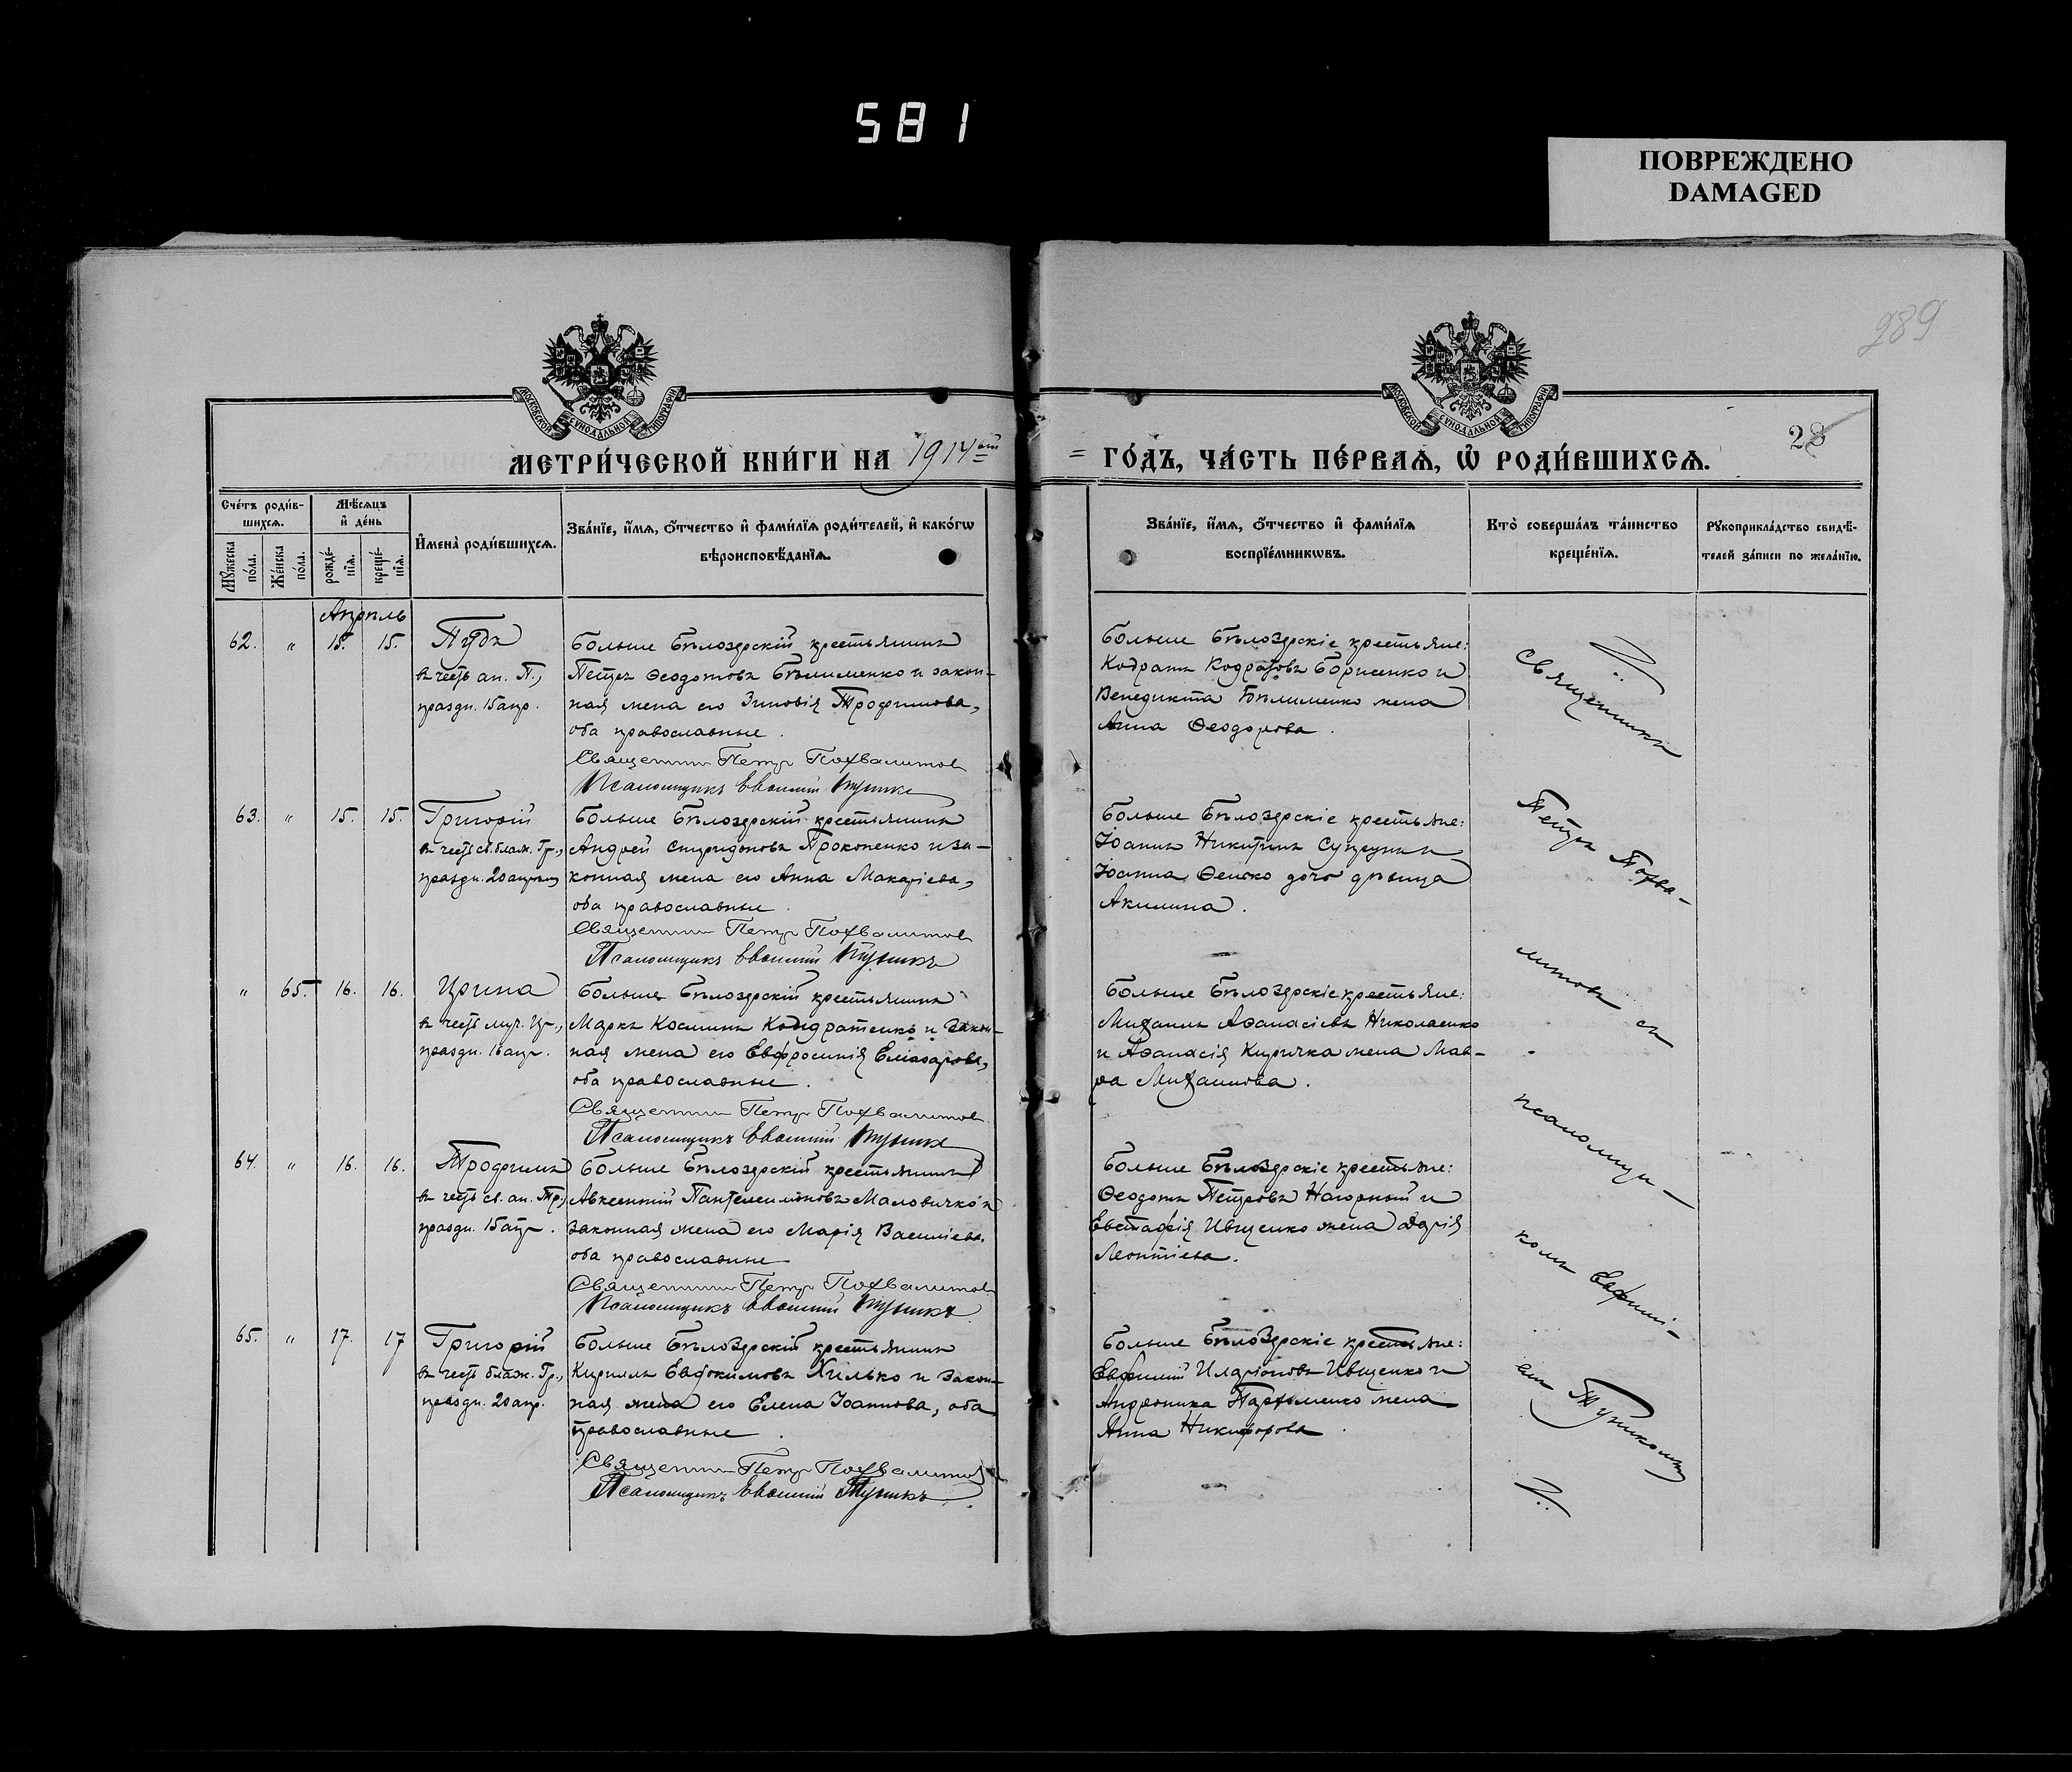 581
ПОВРЕЖДЕНО
DAMAGED
289
28
МОСКОВСКОЙ СѴНОДАЛЬНОЙ ТИПОГРАФІИ
МОСКОВСКОЙ СѴНОДАЛЬНОЙ ТИПОГРАФІИ
МЕТРИ́ЧЕСКОЙ КНИ́ГИ НА 1914ый = ГО́ДЪ, ЧА́СТЬ ПЕ́РВАѦ, Ѡ҆ РОДИ́ВШИХСѦ.
Сче́тъ роди́в-
шихсѧ.
Мꙋ́жеска по́ла.
Же́нска по́ла.
Мѣ́сѧцъ
и҆ де́нь
рожде́-
нїѧ.
креще́-
нїѧ.
И҆мена̀ роди́вшихсѧ.
Зва́нїе, и҆́мѧ, ѻ҆́тчество и҆ фами́лїѧ роди́телей, и҆ како́гѡ
вѣроисповѣ́данїѧ.
Зва́нїе, и҆́мѧ, ѻ҆́тчество и҆ фами́лїѧ
воспрїе́мникѡвъ.
Кто̀ соверша́лъ та́инство
креще́нїѧ.
Рꙋкоприкла́дство свидѣ́-
телей за́писи по жела́нїю.
Апрѣль
62. " 15. 15. Пудъ
въ честь ап. П.,
праздн. 15 апр.
Больше Бѣлозерскій крестьянинъ
Петръ Ѳеодотовъ Бѣлименко и закон-
ная жена его Зиновія Трофимова,
оба православные.
Священник Петр Похвалитов
Псаломщикъ Евѳимій Тупикъ
Больше Бѣлозерскіе крестьяне:
Кодратъ Кодратовъ Борисенко и
Венедикта Бѣлименко жена
Анна Ѳеодорова.
63. " 15. 15. Григорій
въ честь св. блаж. Гр.,
праздн. 20 апрѣля
Больше Бѣлозерскій крестьянинъ
Андрей Спиридоновъ Прокопенко и за-
конная жена его Анна Макаріева,
оба православные.
Священник Петр Похвалитов
Псаломщикъ Евѳимій Тупикъ
Больше Бѣлозерскіе крестьяне:
Іоаннъ Никитинъ Супрунъ и
Іоанна Ѳенко дочь дѣвица
Акилина.
" 65. 16. 16. Ирина
въ честь муч. Ир.,
праздн. 16 апр.
Больше Бѣлозерскій крестьянинъ
Маркъ Косминъ Кондратенко и закон-
ная жена его Евфросинія Еліазарова,
оба православные.
Священник Петр Похвалитов
Псаломщикъ Евѳимій Тупикъ
Больше Бѣлозерскіе крестьяне:
Михаилъ Аѳанасіевъ Николаенко
и Аѳанасія Киричка жена Мав-
ра Михаилова.
64. " 16. 16. Трофимъ
въ честь св. ап. Тр.,
праздн. 15 апр.
Больше Бѣлозерскій крестьянинъ
Авксентій Пантелеимоновъ Маловичко и
законная жена его Марія Василіева,
оба православные
Священник Петр Похвалитов
Псаломщикъ Евѳимій Тупикъ
Больше Бѣлозерскіе крестьяне:
Ѳеодотъ Петровъ Нагорный и
Евстафія Иващенко жена Дарія
Леонтіева.
65. " 17. 17 Григорій
въ честь блаж. Гр.,
праздн. 20 апр.
Больше Бѣлозерскій крестьянинъ
Кириллъ Евдокимовъ Хилько и закон-
ная жена его Елена Іоаннова, оба
православные.
Священник Петр Похвалитов
Псаломщикъ Евѳимій Тупикъ
Больше Бѣлозерскіе крестьяне:
Евфимій Иларіоновъ Иващенко и
Андроника Пархоменко жена
Анна Никифорова.
Священникъ
Петръ Похва-
литовъ съ
псаломщи-
комъ Евфимі-
емъ Тупикомъ